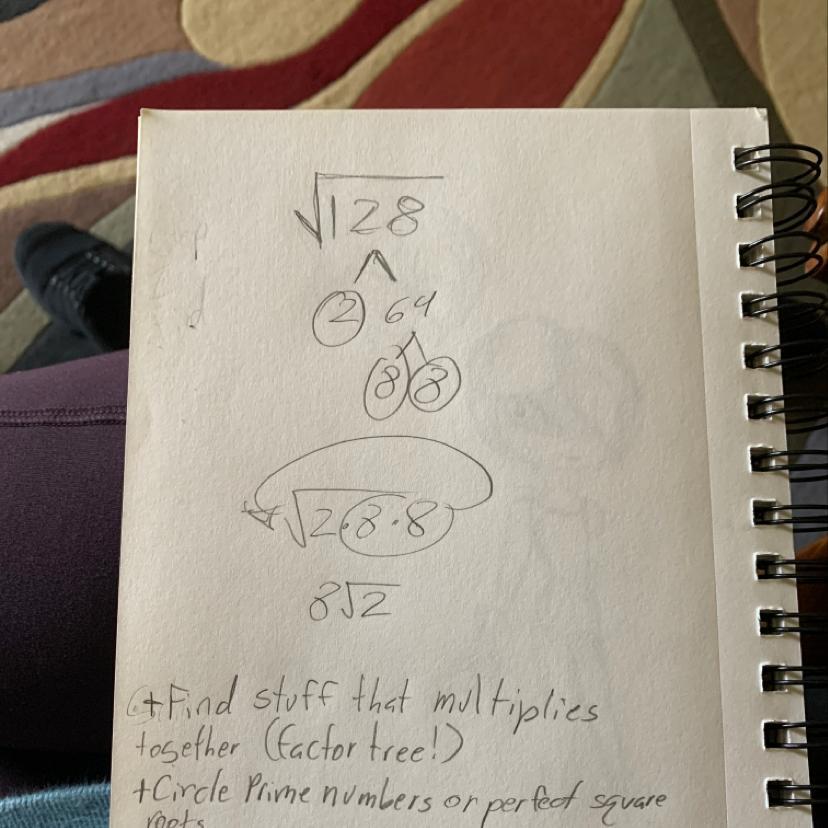 √128
2 64
8 8
√2·8·8
8√2
+Find stuff that multiplies
together (factor tree!)
+Circle Prime numbers or perfect square
roots